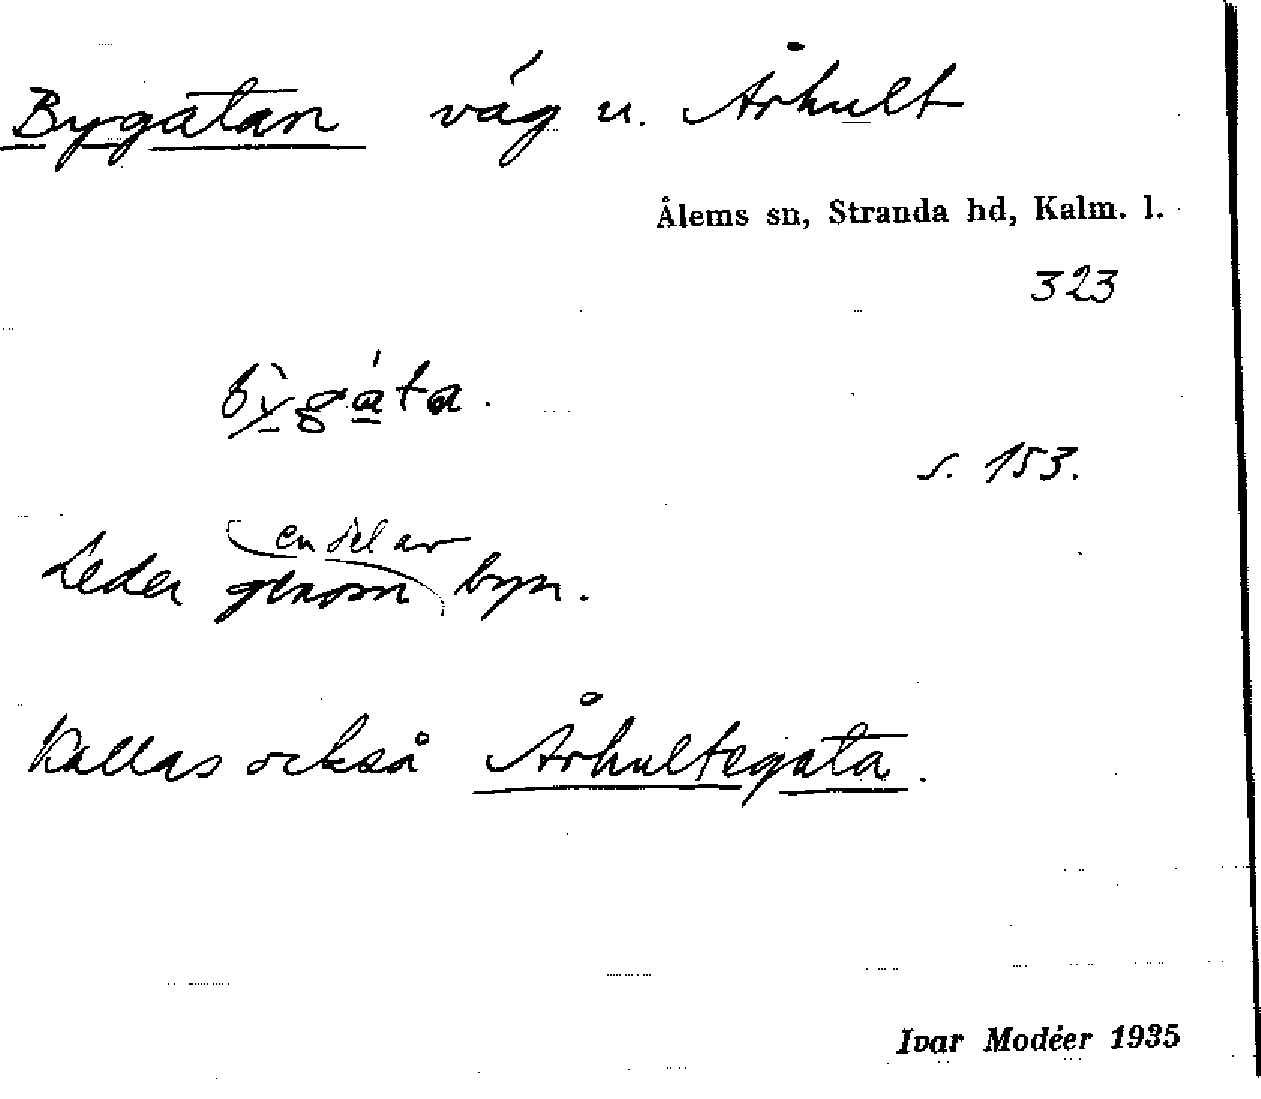 Bygatan väg u. Århult
Ålems sn, Stranda hd, Kalm. l.
323
bỳgáta.
s. 153.
en del av
Leder genom byn.
Kallas också Århultegata.
Ivar Modéer 1935